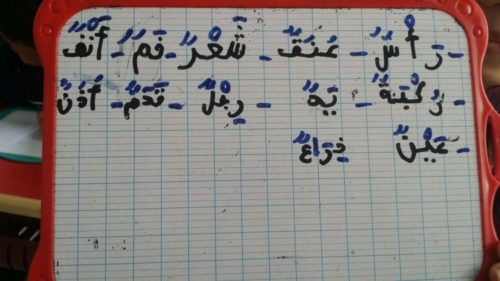 - رَأْسٌ - عُنُقٌ - شَعْرٌ - فَمٌ - أَنْفٌ
- رُكْبَةٌ - يَدٌ - رِجْلٌ - قَدَمٌ - أُذُنٌ
- عَيْنٌ - ذِرَاعٌ